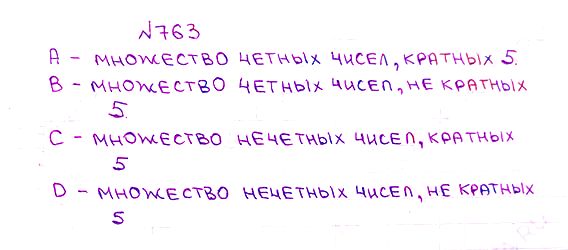 №763
A - множество четных чисел, кратных 5.
B - множество четных чисел, не кратных
5.
C - множество нечетных чисел, кратных
5
D - множество нечетных чисел, не кратных
5